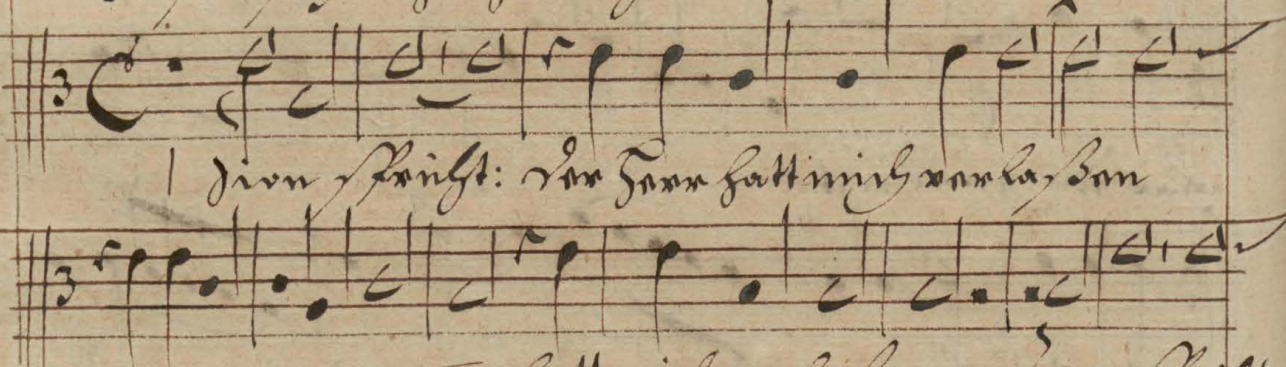 Zion spricht: der Herr hatt mich verlaßen